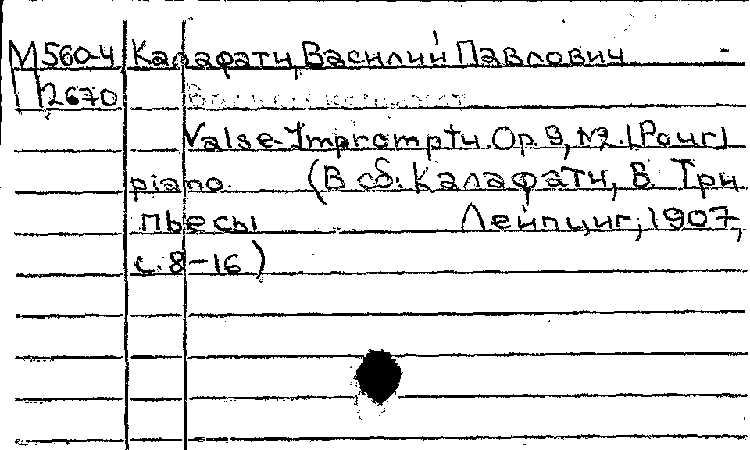 М560-4 Калафати, Василий Павлович -
2670
Valse-Impromptu. Op. 9, №2. [Pour]
piano. (В сб.: Калафати, В. Три
пьесы Лейпциг, 1907,
с. 8-16)